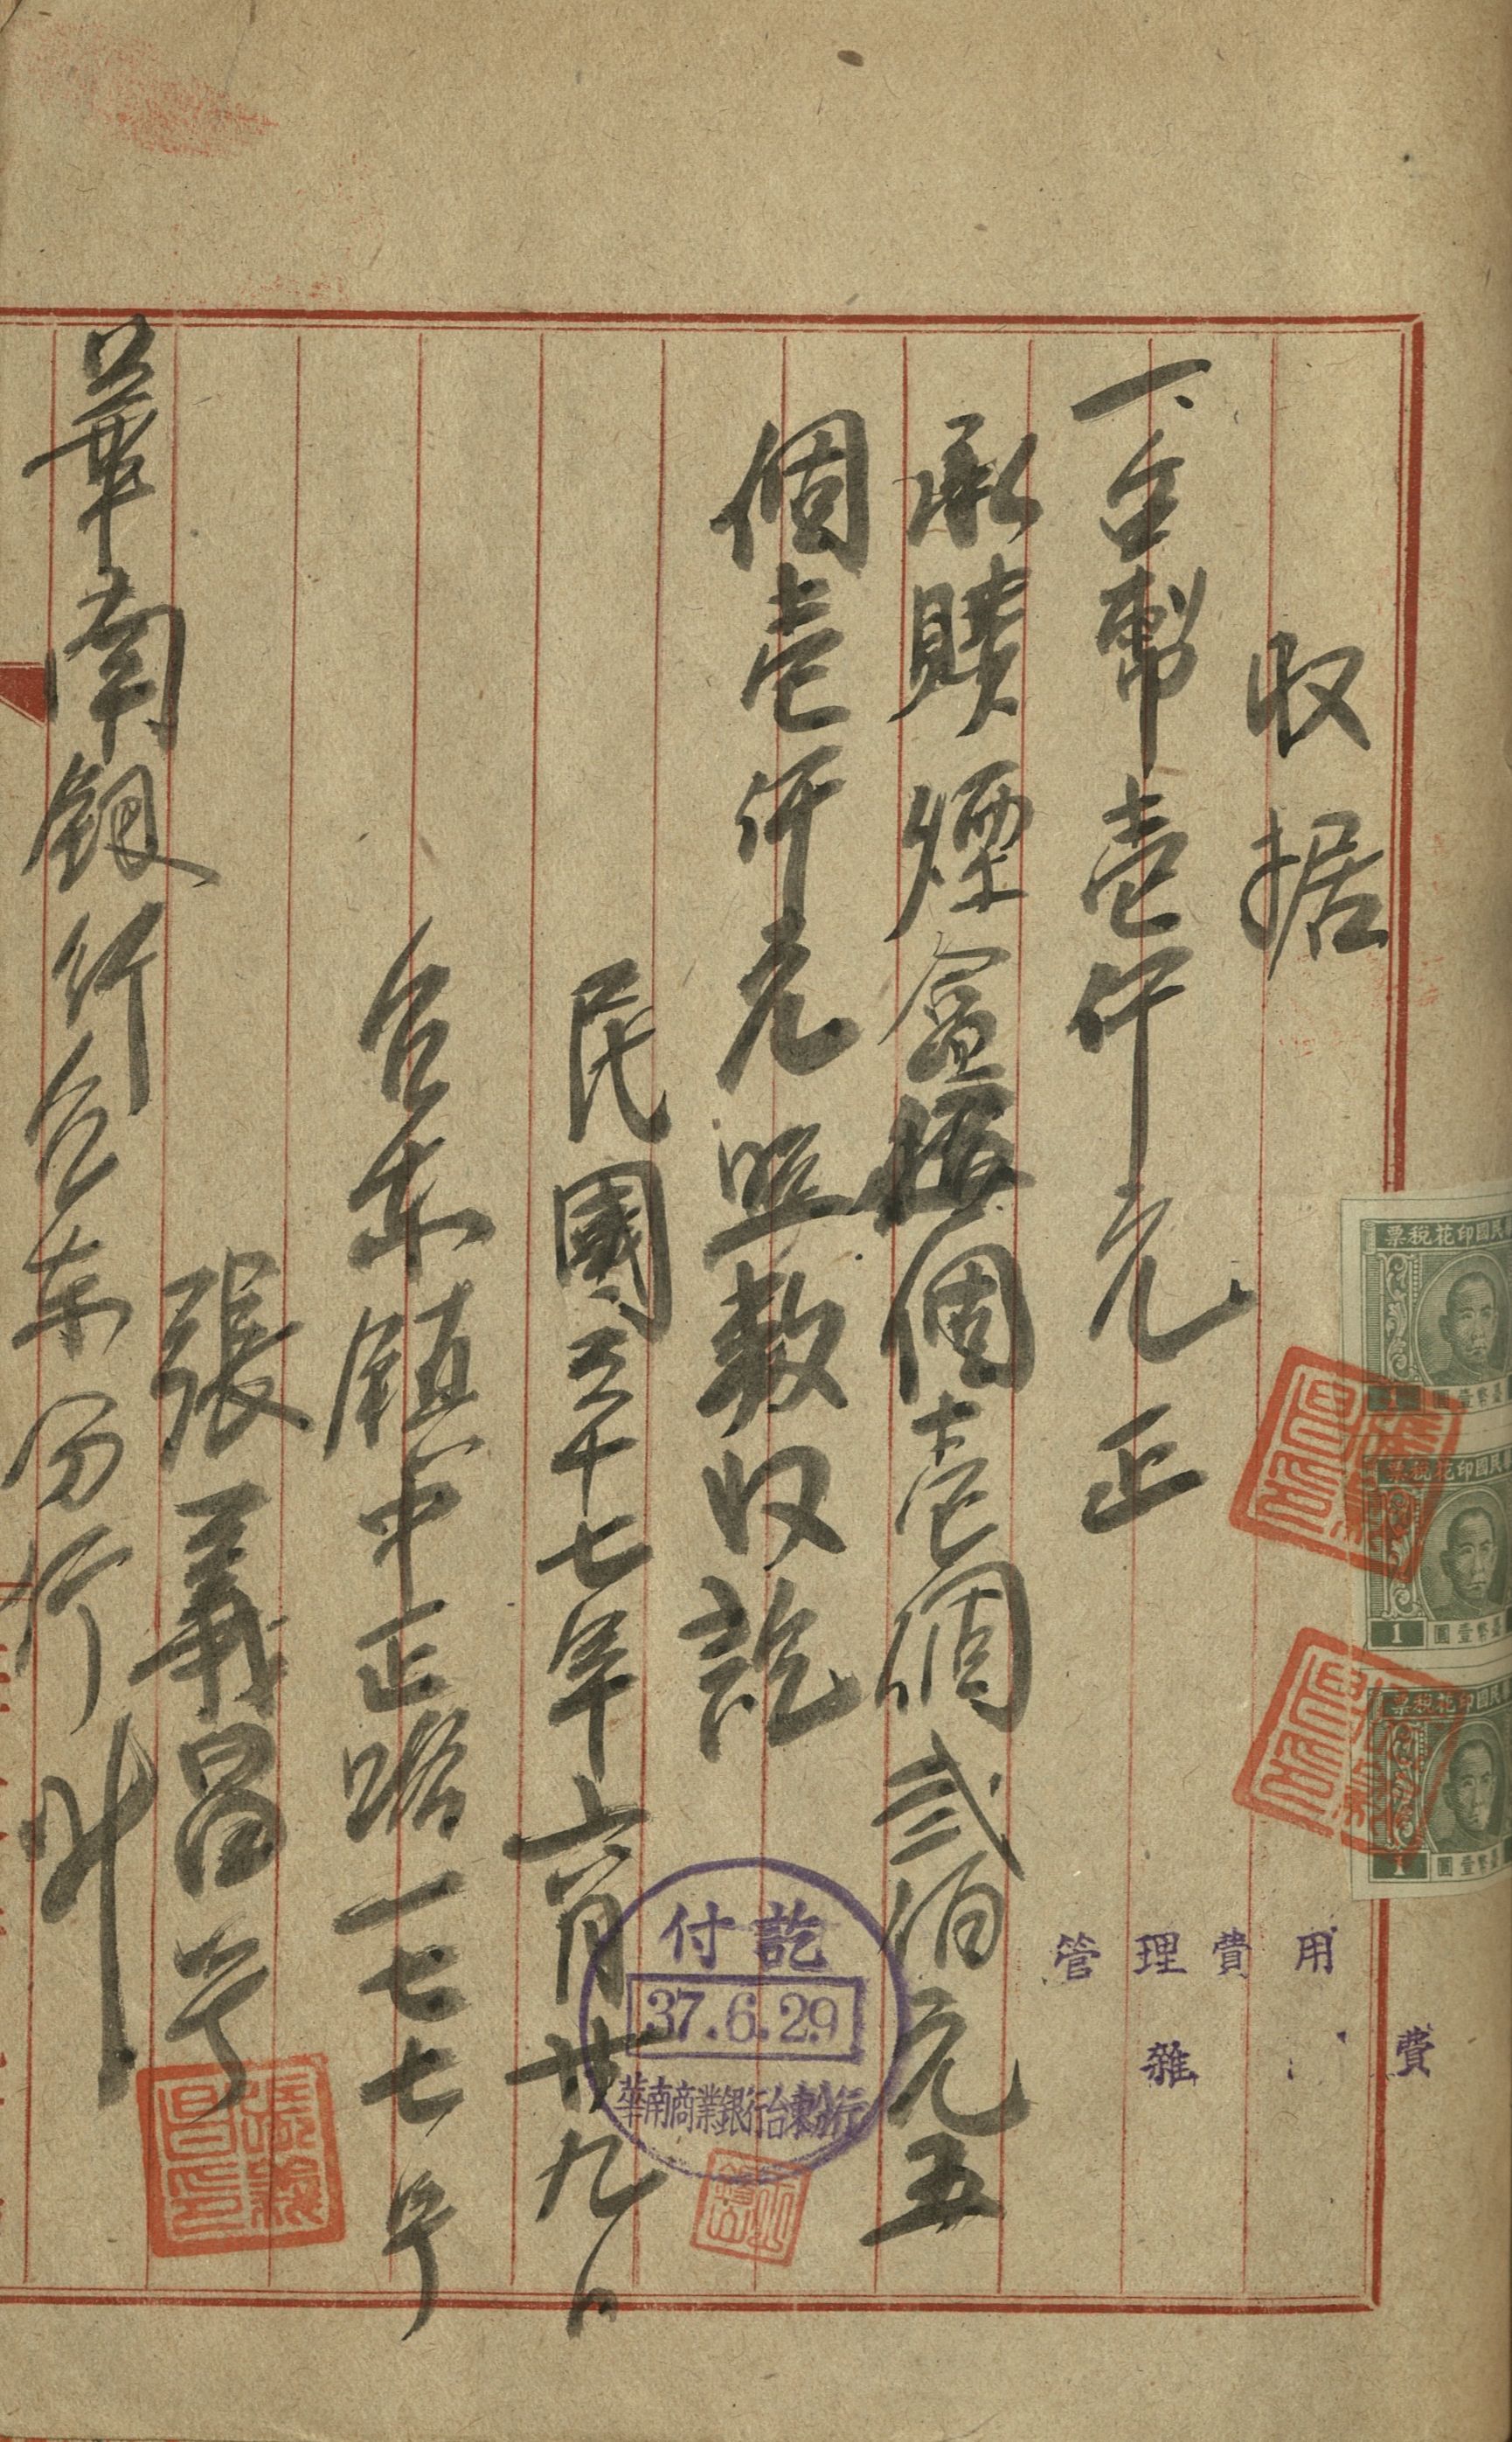 收据
一、台幣壹仟元正
承購煙盒 個壹個弍佰元五
個壹仟元照数收訖
民國三十七年六月廿九日
台东鎮中正路一七七号
張義昌号
華南銀行台东分行
管理費用
雜費
付訖
37.6.29
華南商業銀行台東分行
民國印花稅票
民國印花稅票
1
圓壹幣
民國印花稅票
1
圓壹幣